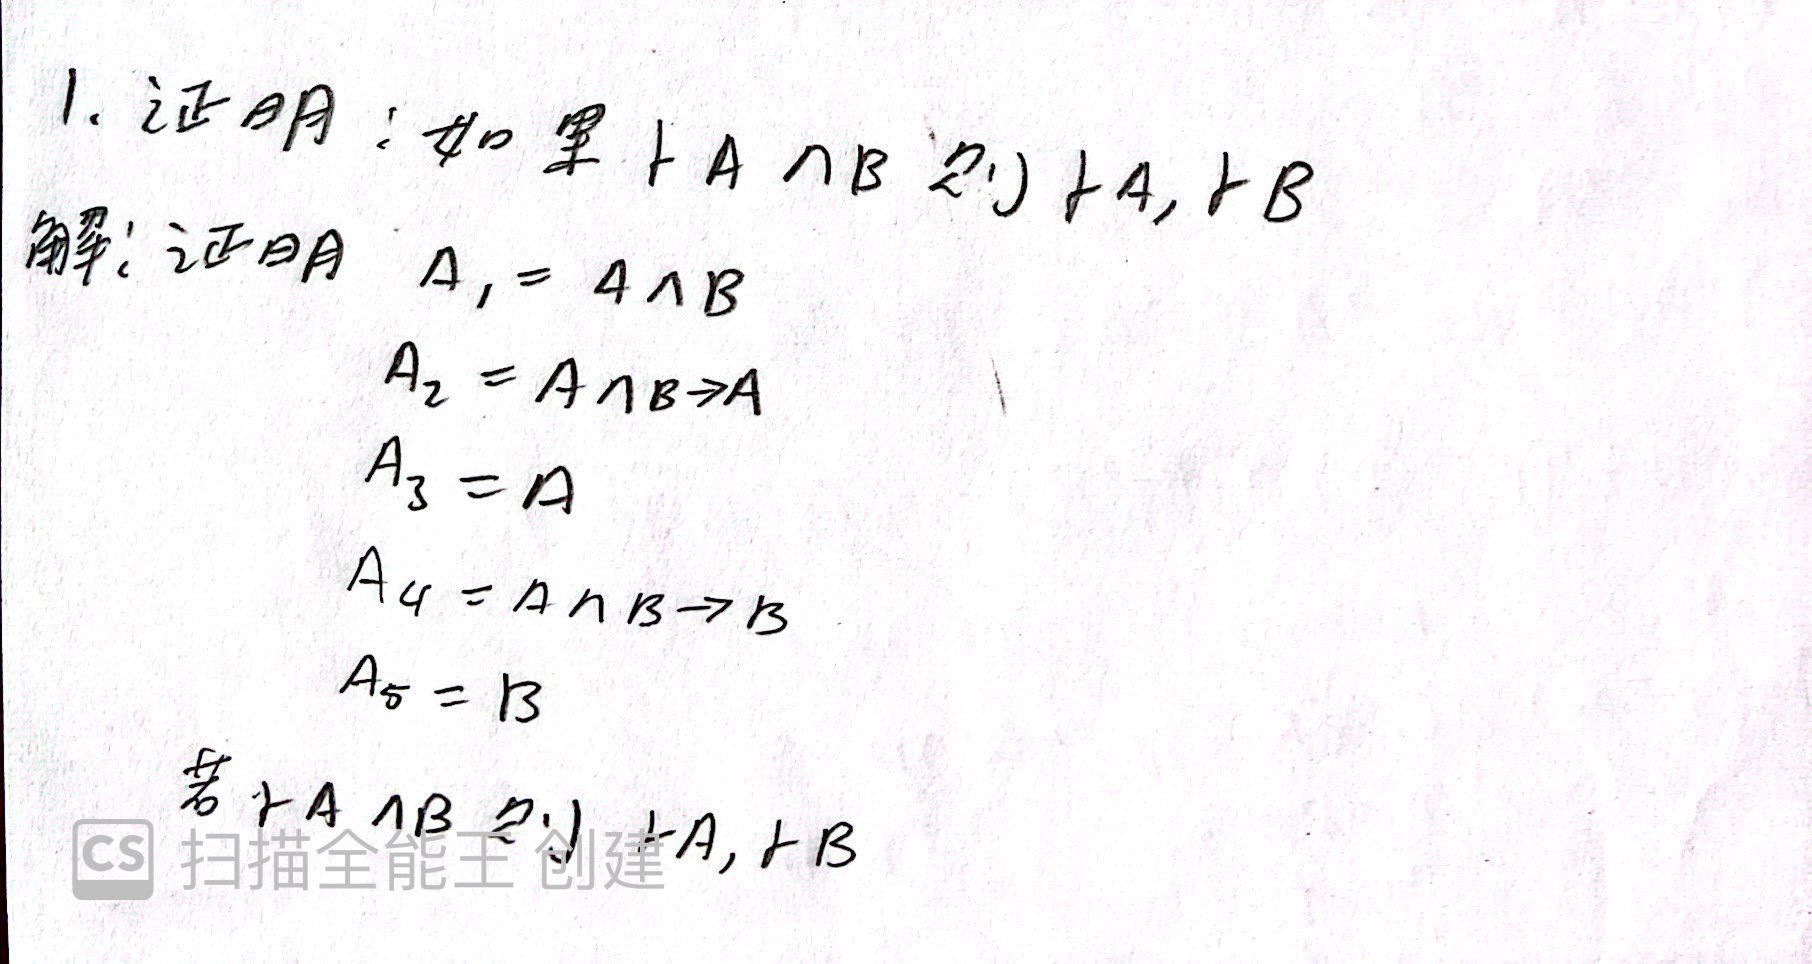 1. 证明：如果 ⊢A∧B 则 ⊢A, ⊢B
解：证明 A₁ = A∧B
A₂ = A∧B→A
A₃ = A
A₄ = A∧B→B
A₅ = B
若 ⊢A∧B 则 ⊢A, ⊢B
CS 扫描全能王 创建